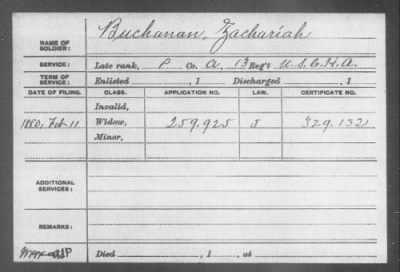 Buchanan, Zachariah
NAME OF SOLDIER:
SERVICE: Late rank, P Co. A, 13 Reg't U.S.C.H.A.
TERM OF SERVICE: Enlisted , 1 Discharged , 1
DATE OF FILING. CLASS. APPLICATION NO. LAW. CERTIFICATE NO.
Invalid,
1880, Feb 11 Widow, 259.925 J 329.132
Minor,
ADDITIONAL SERVICES:
REMARKS:
Died , 1 , at